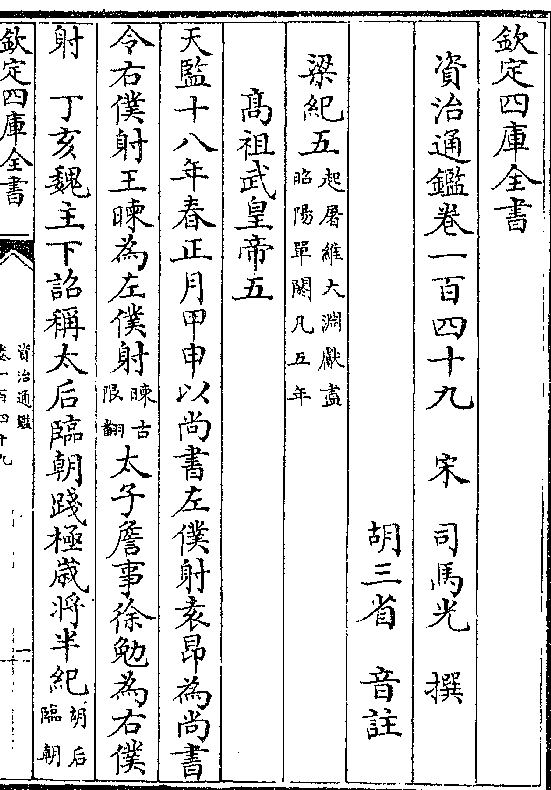 欽定四庫全書
資治通鑑卷一百四十九 宋 司馬光 撰
胡三省 音註
梁紀五起屠維大淵獻盡昭陽單閼凡五年
髙祖武皇帝五
天監十八年春正月甲申以尚書左僕射袁昂為尚書
令右僕射王暕為左僕射暕古限翻太子詹事徐勉為右僕
射 丁亥魏主下詔稱太后臨朝踐極歲將半紀胡后臨朝
欽定四庫全書
資治通鑑
卷一百四十九
一